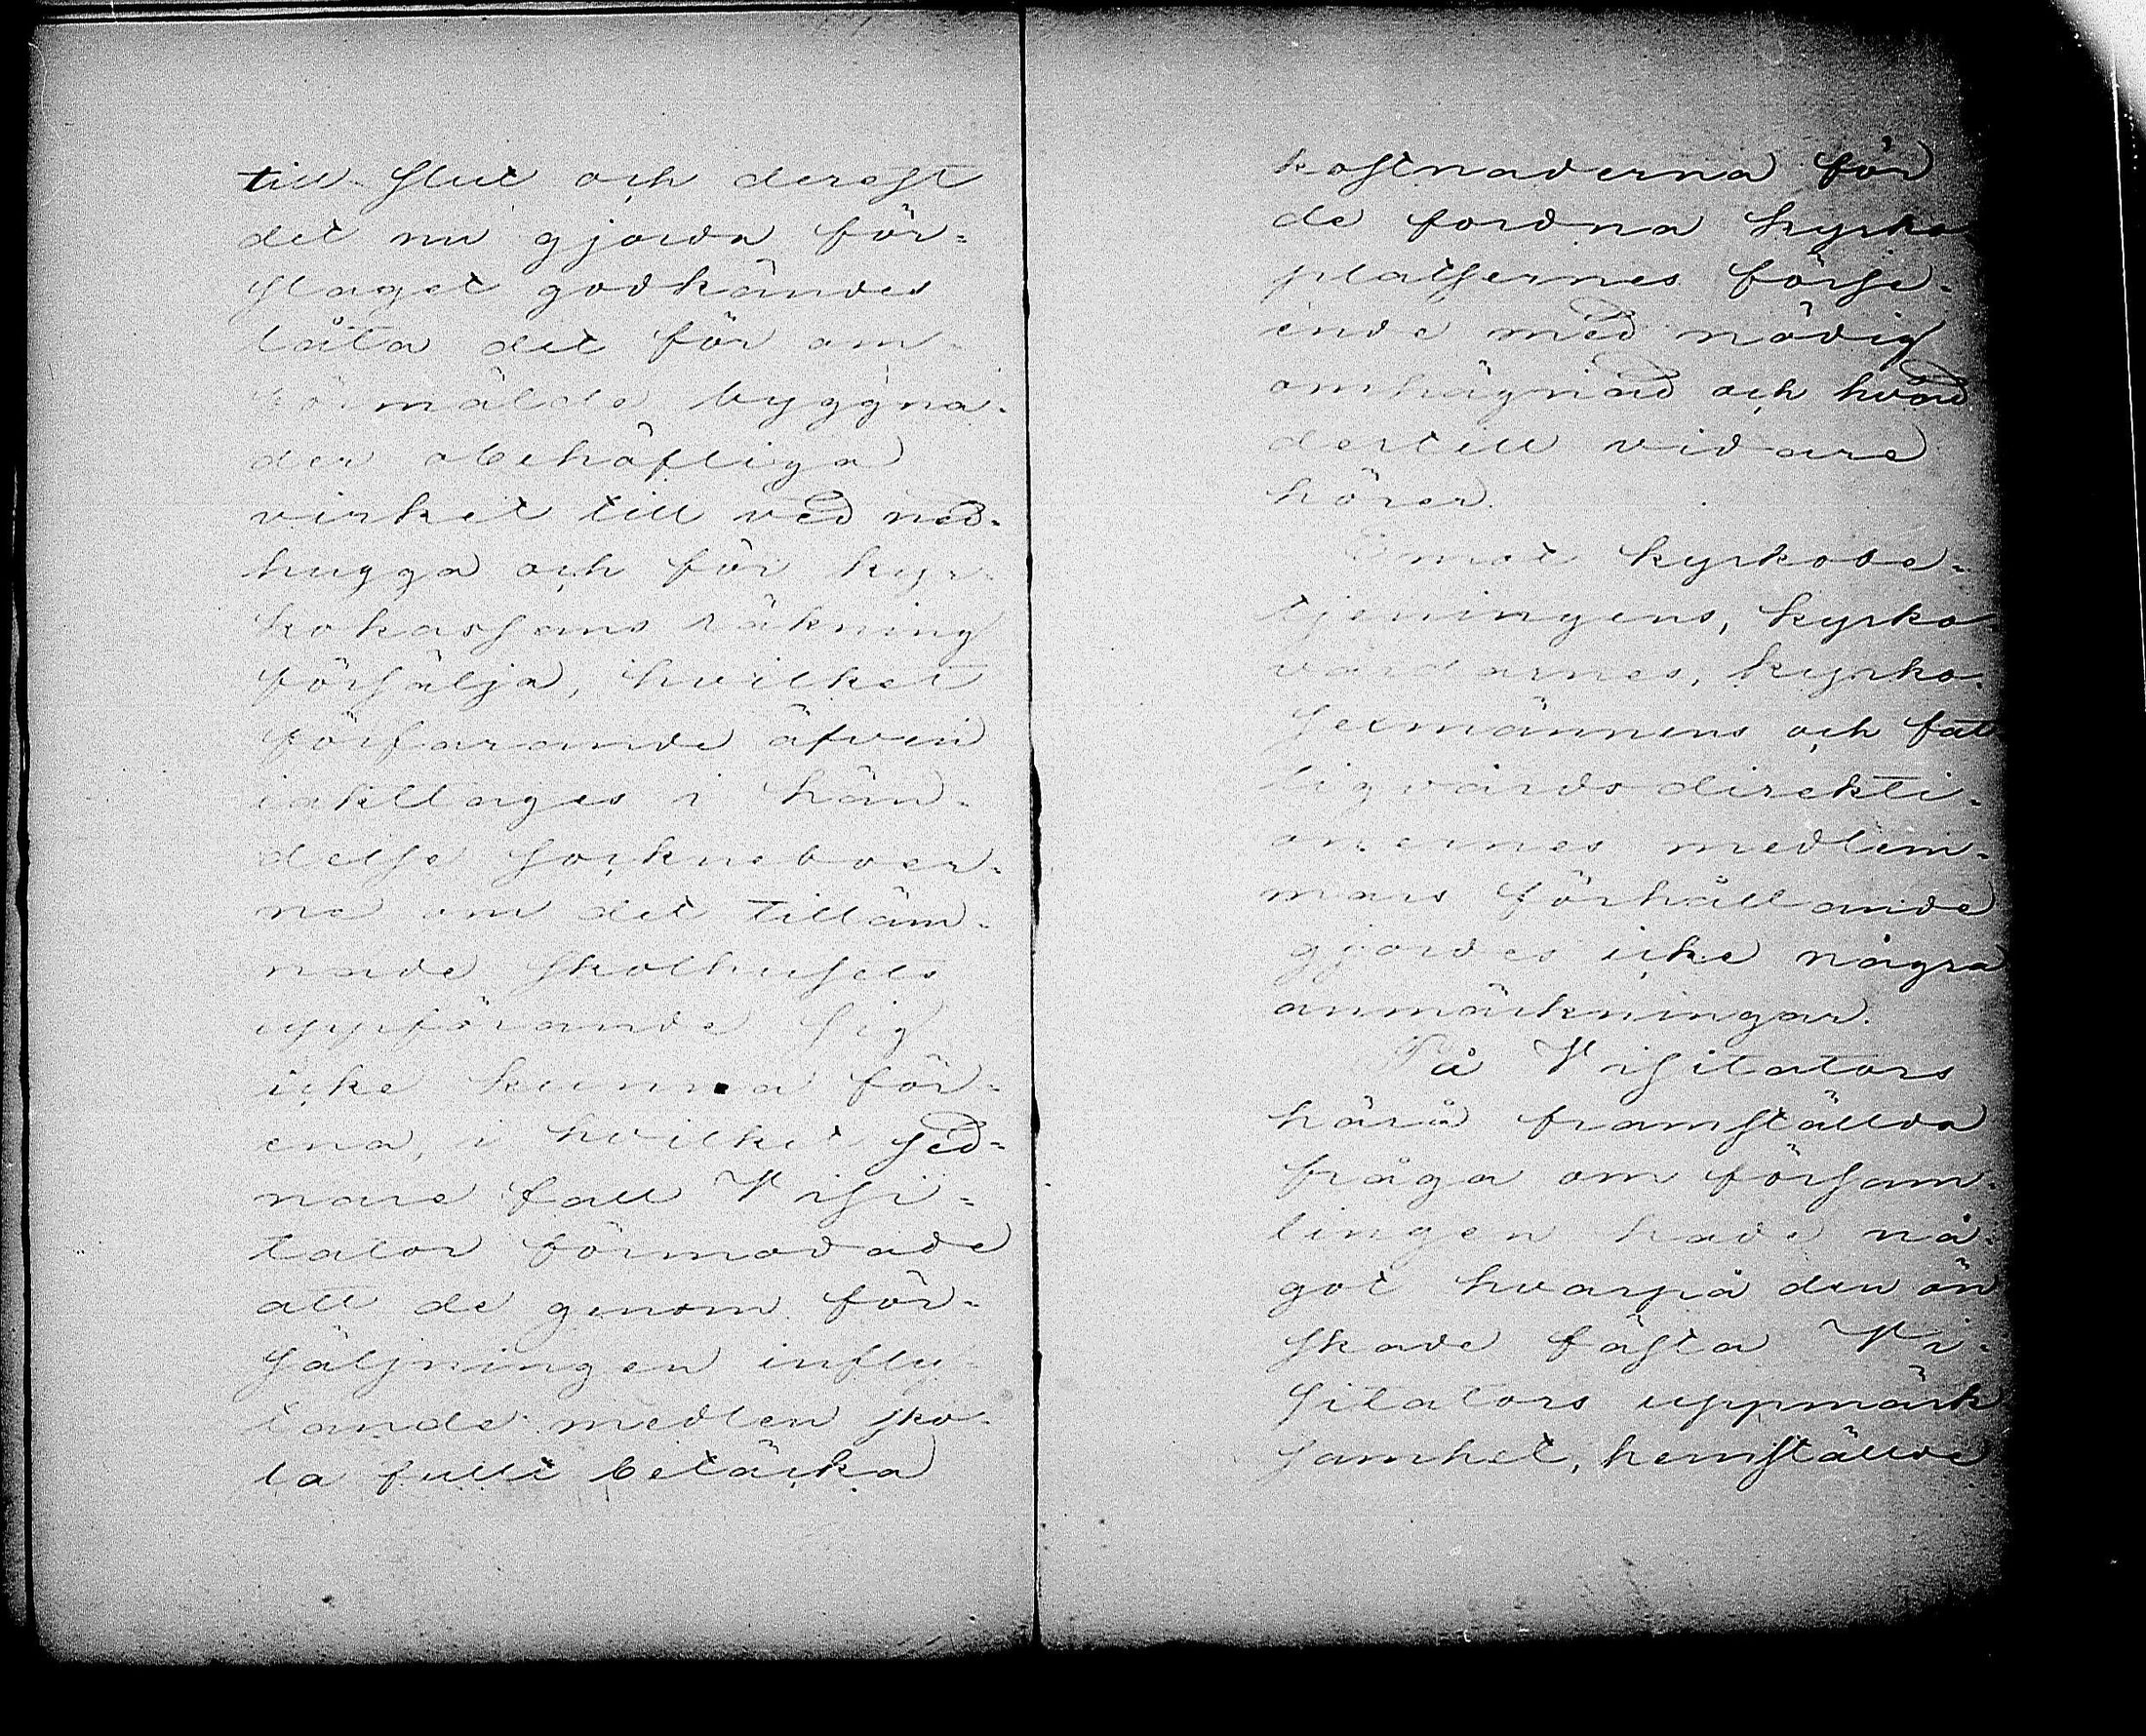 till slut och derest
det nu gjorda för-
slaget godkändes
låta det för om-
förmälda byggna-
der obehöfliga
virket till ved ned-
hugga och för kyr-
kokassans räkning
försälja, hvilket
förfarande äfven
iakttages i hän-
delse sockneboer-
na om det tilläm-
nade skolhusets
uppförande sig
icke kunna för-
ena, i hvilket sed-
nare fall Visi-
tator förmodade
att de genom för-
säljningen infly-
tande medlen sko-
la fullt betäcka
kostnaderna för
de fordna kyrko
platsernes förse-
ende med nödig
omhägnad och hvad
dertill vidare
hörer.
Emot kyrkobe-
tjeningens, kyrko
värdarnes, kyrko-
sexmännens och fat
tigvårdsdirekti-
onernes medlem-
mars förhållande
gjordes icke några
anmärkningar.
På Visitators
härå framställda
fråga om försam-
lingen hade nå-
got hvarpå den ön
skade fästa Vi-
sitators uppmärk
samhet, hemställde